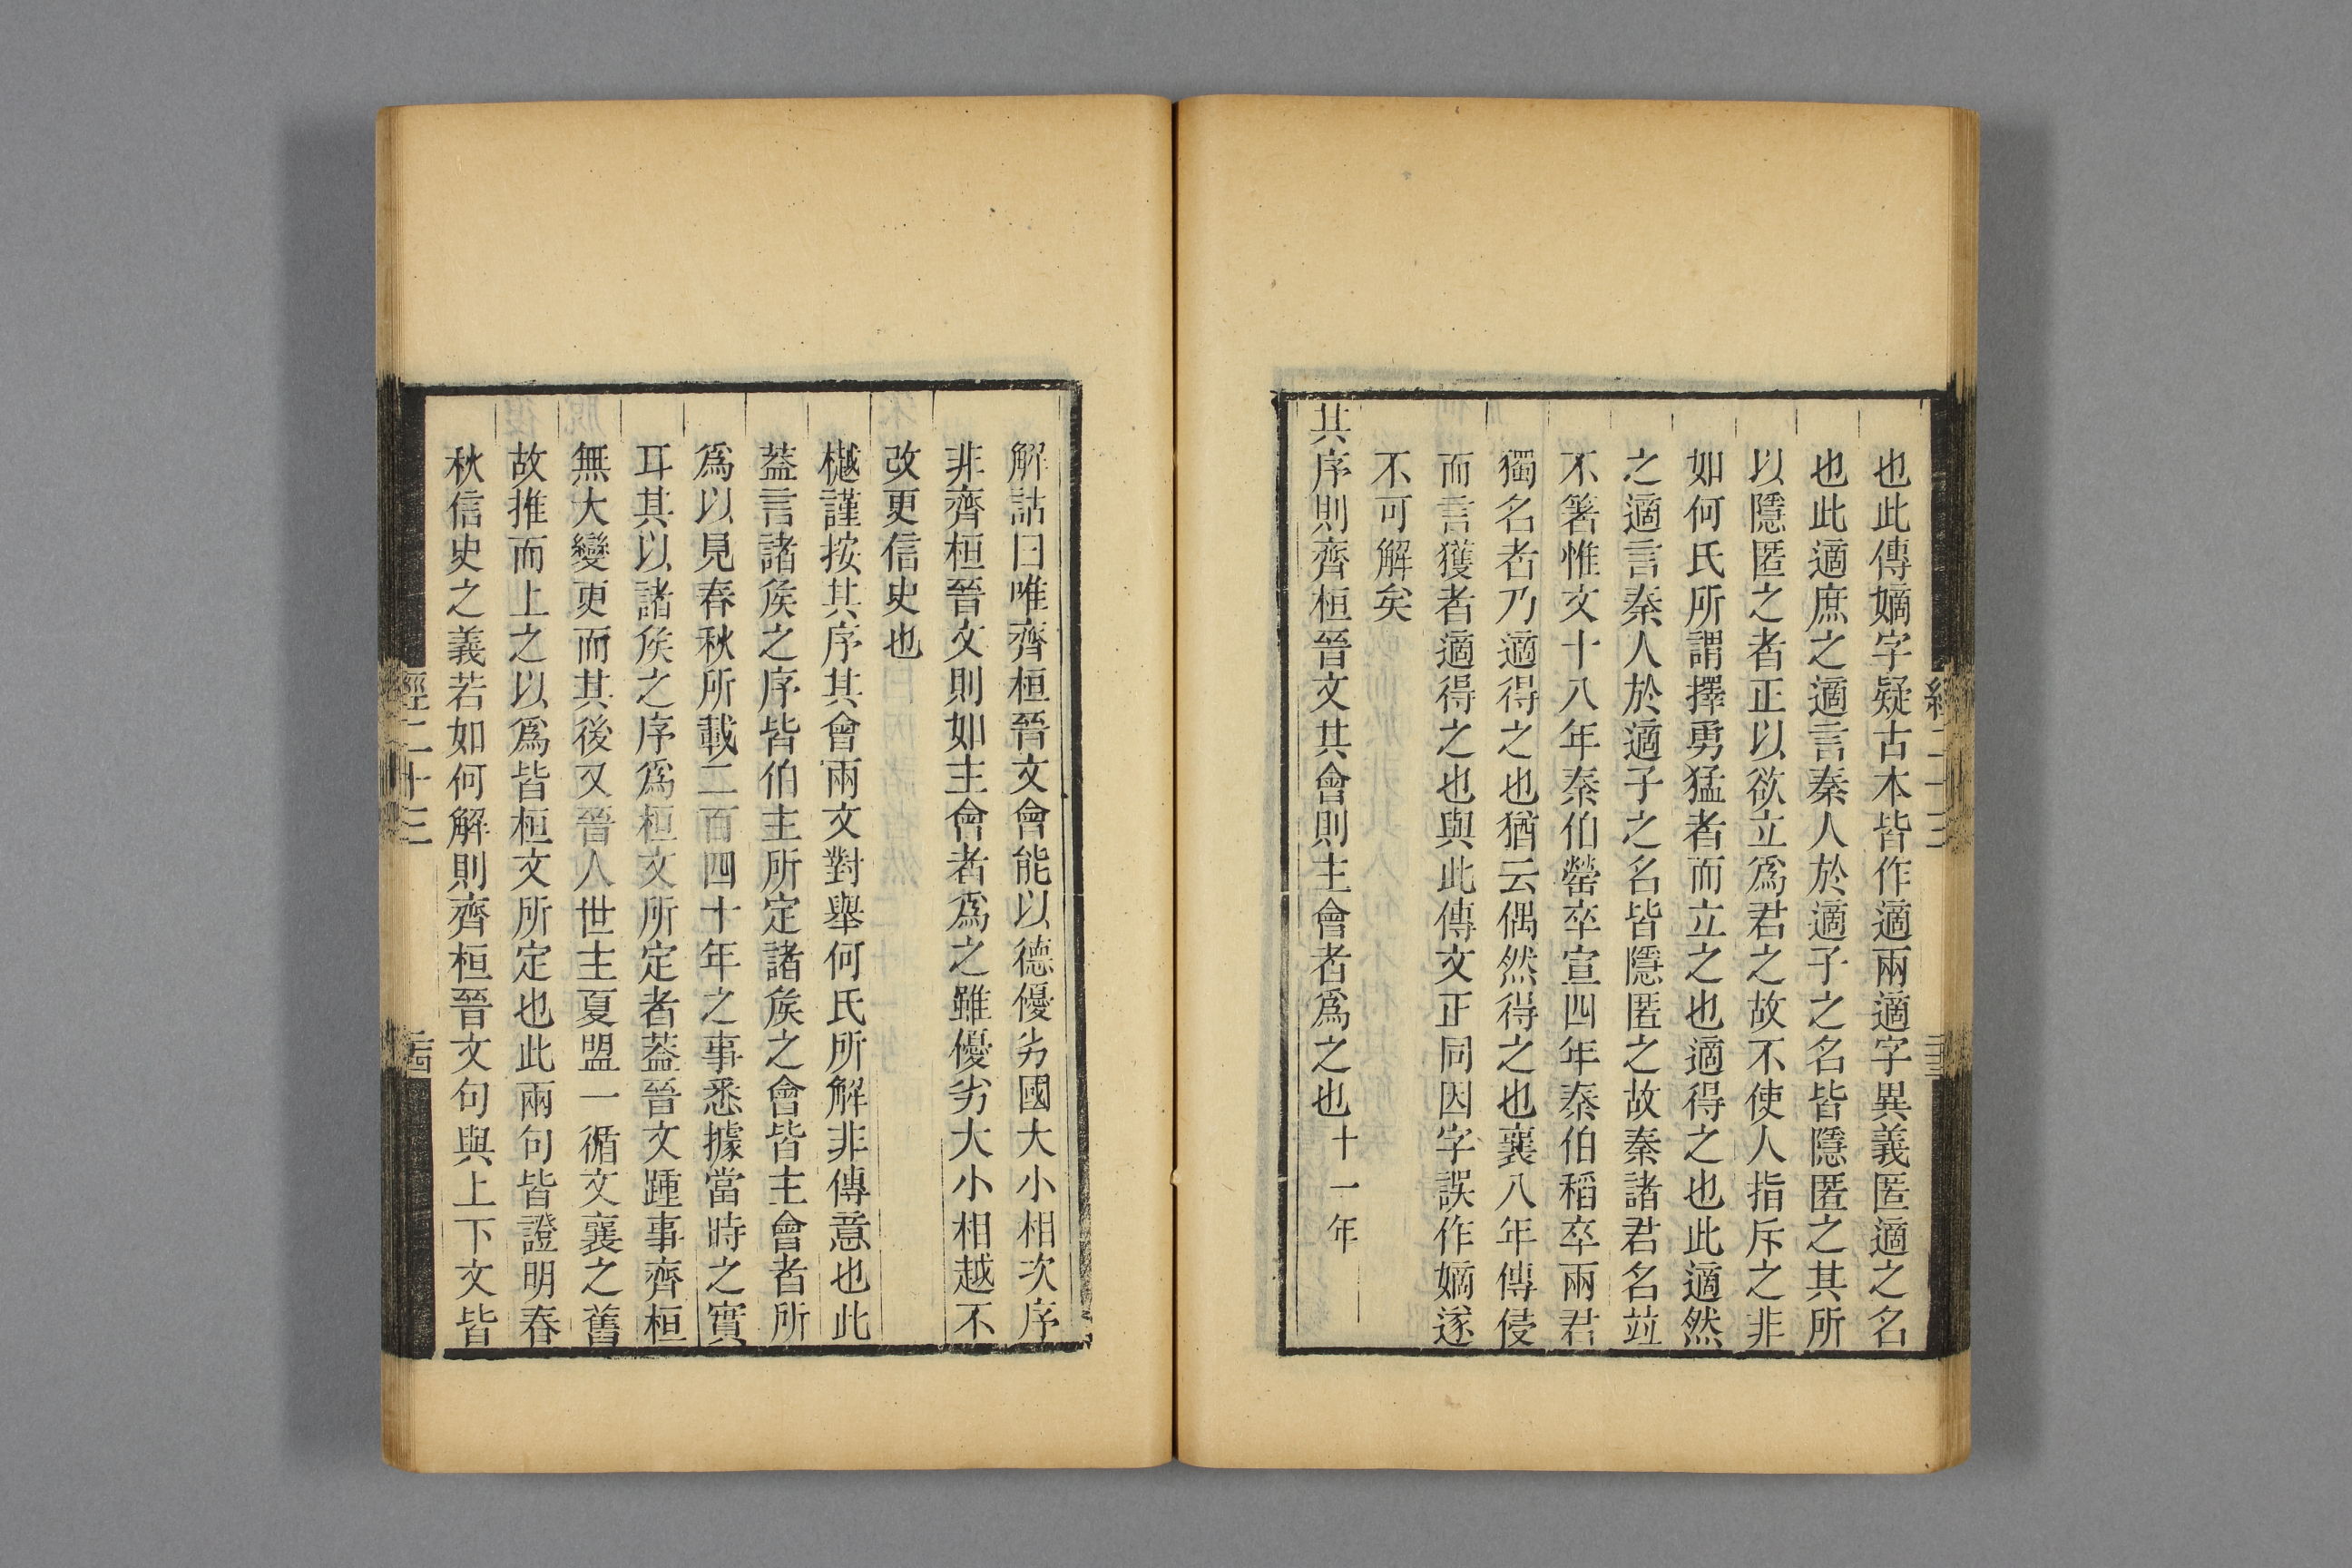 也此傳嫡字疑古本皆作適兩適字異義匿適之名
也此適庶之適言秦人於適子之名皆隱匿之其所
以隱匿之者正以欲立爲君之故不使人指斥之非
如何氏所謂擇勇猛者而立之也適得之也此適然
之適言秦人於適子之名皆隱匿之故秦諸君名竝
不箸惟文十八年秦伯罃卒宣四年秦伯稻卒兩君
獨名者乃適得之也猶云偶然得之也襄八年傳侵
而言獲者適得之也與此傳文正同因字誤作嫡遂
不可解矣
其序則齊桓晉文其會則主會者爲之也十一年
解詁曰唯齊桓晉文會能以德優劣國大小相次序
非齊桓晉文則如主會者爲之雖優劣大小相越不
改更信史也
樾謹按其序其會兩文對舉何氏所解非傳意也此
葢言諸矦之序皆伯主所定諸矦之會皆主會者所
爲以見春秋所載二百四十年之事悉據當時之實
耳其以諸矦之序爲桓文所定者葢晉文踵事齊桓
無大變更而其後又晉人世主夏盟一循文襄之舊
故推而上之以爲皆桓文所定也此兩句皆證明春
秋信史之義若如何解則齊桓晉文句與上下文皆
經二十三